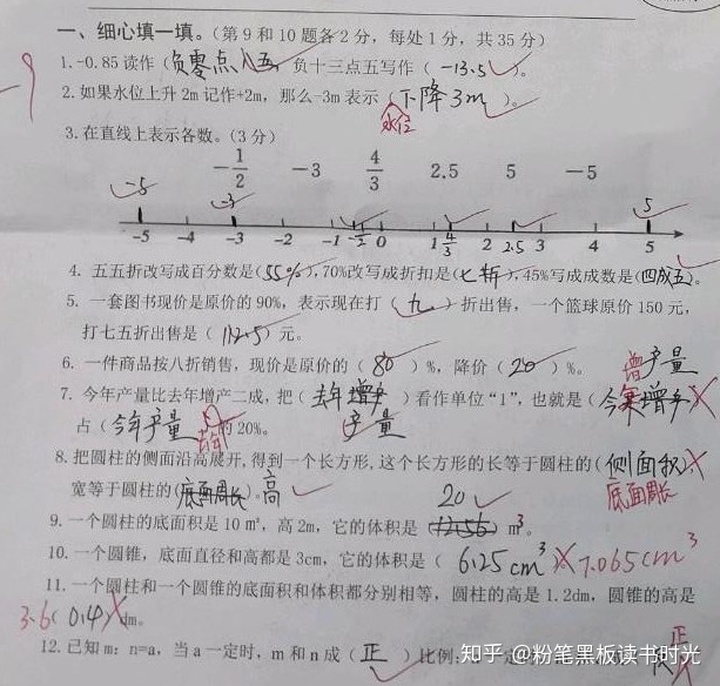 一、细心填一填。(第 9 和 10 题各 2 分，每处 1 分，共 35 分)
1. -0.85 读作 (负零点八五, 负十三点五写作 ( -13.5 )。
-9
2. 如果水位上升 2m 记作+2m，那么-3m 表示 (下降3m)。
水位
3. 在直线上表示各数。(3 分)
-1/2 -3 4/3 2.5 5 -5
-5 -3 5
-5 -4 -3 -2 -1 -1/2 0 1 4/3 2 2.5 3 4 5
4. 五五折改写成百分数是(55%), 70%改写成折扣是(七折), 45%写成成数是(四成五)。
5. 一套图书现价是原价的 90%，表示现在打 ( 九 ) 折出售，一个篮球原价 150 元，
打七五折出售是 ( 112.5 ) 元。
6. 一件商品按八折销售，现价是原价的 ( 80 ) %，降价 ( 20 ) %。
增产量
7. 今年产量比去年增产二成，把 ( 去年增产 ) 看作单位"1"，也就是 (今年增产)
占 (今年产量)的 20%。 产量
去年
8. 把圆柱的侧面沿高展开,得到一个长方形,这个长方形的长等于圆柱的(侧面积),
宽等于圆柱的(底面周长)。高 底面周长
20
9. 一个圆柱的底面积是 10 m²，高 2m，它的体积是 (12.56) m³。
10. 一个圆锥，底面直径和高都是 3cm，它的体积是 ( 6.25cm³ ) 7.065cm³
11. 一个圆柱和一个圆锥的底面积和体积都分别相等，圆柱的高是 1.2dm，圆锥的高是
3.6 ( 0.4 ) dm。
正
12. 已知 m: n=a，当 a 一定时，m 和 n 成 ( 正 ) 比例;
知乎 @粉笔黑板读书时光